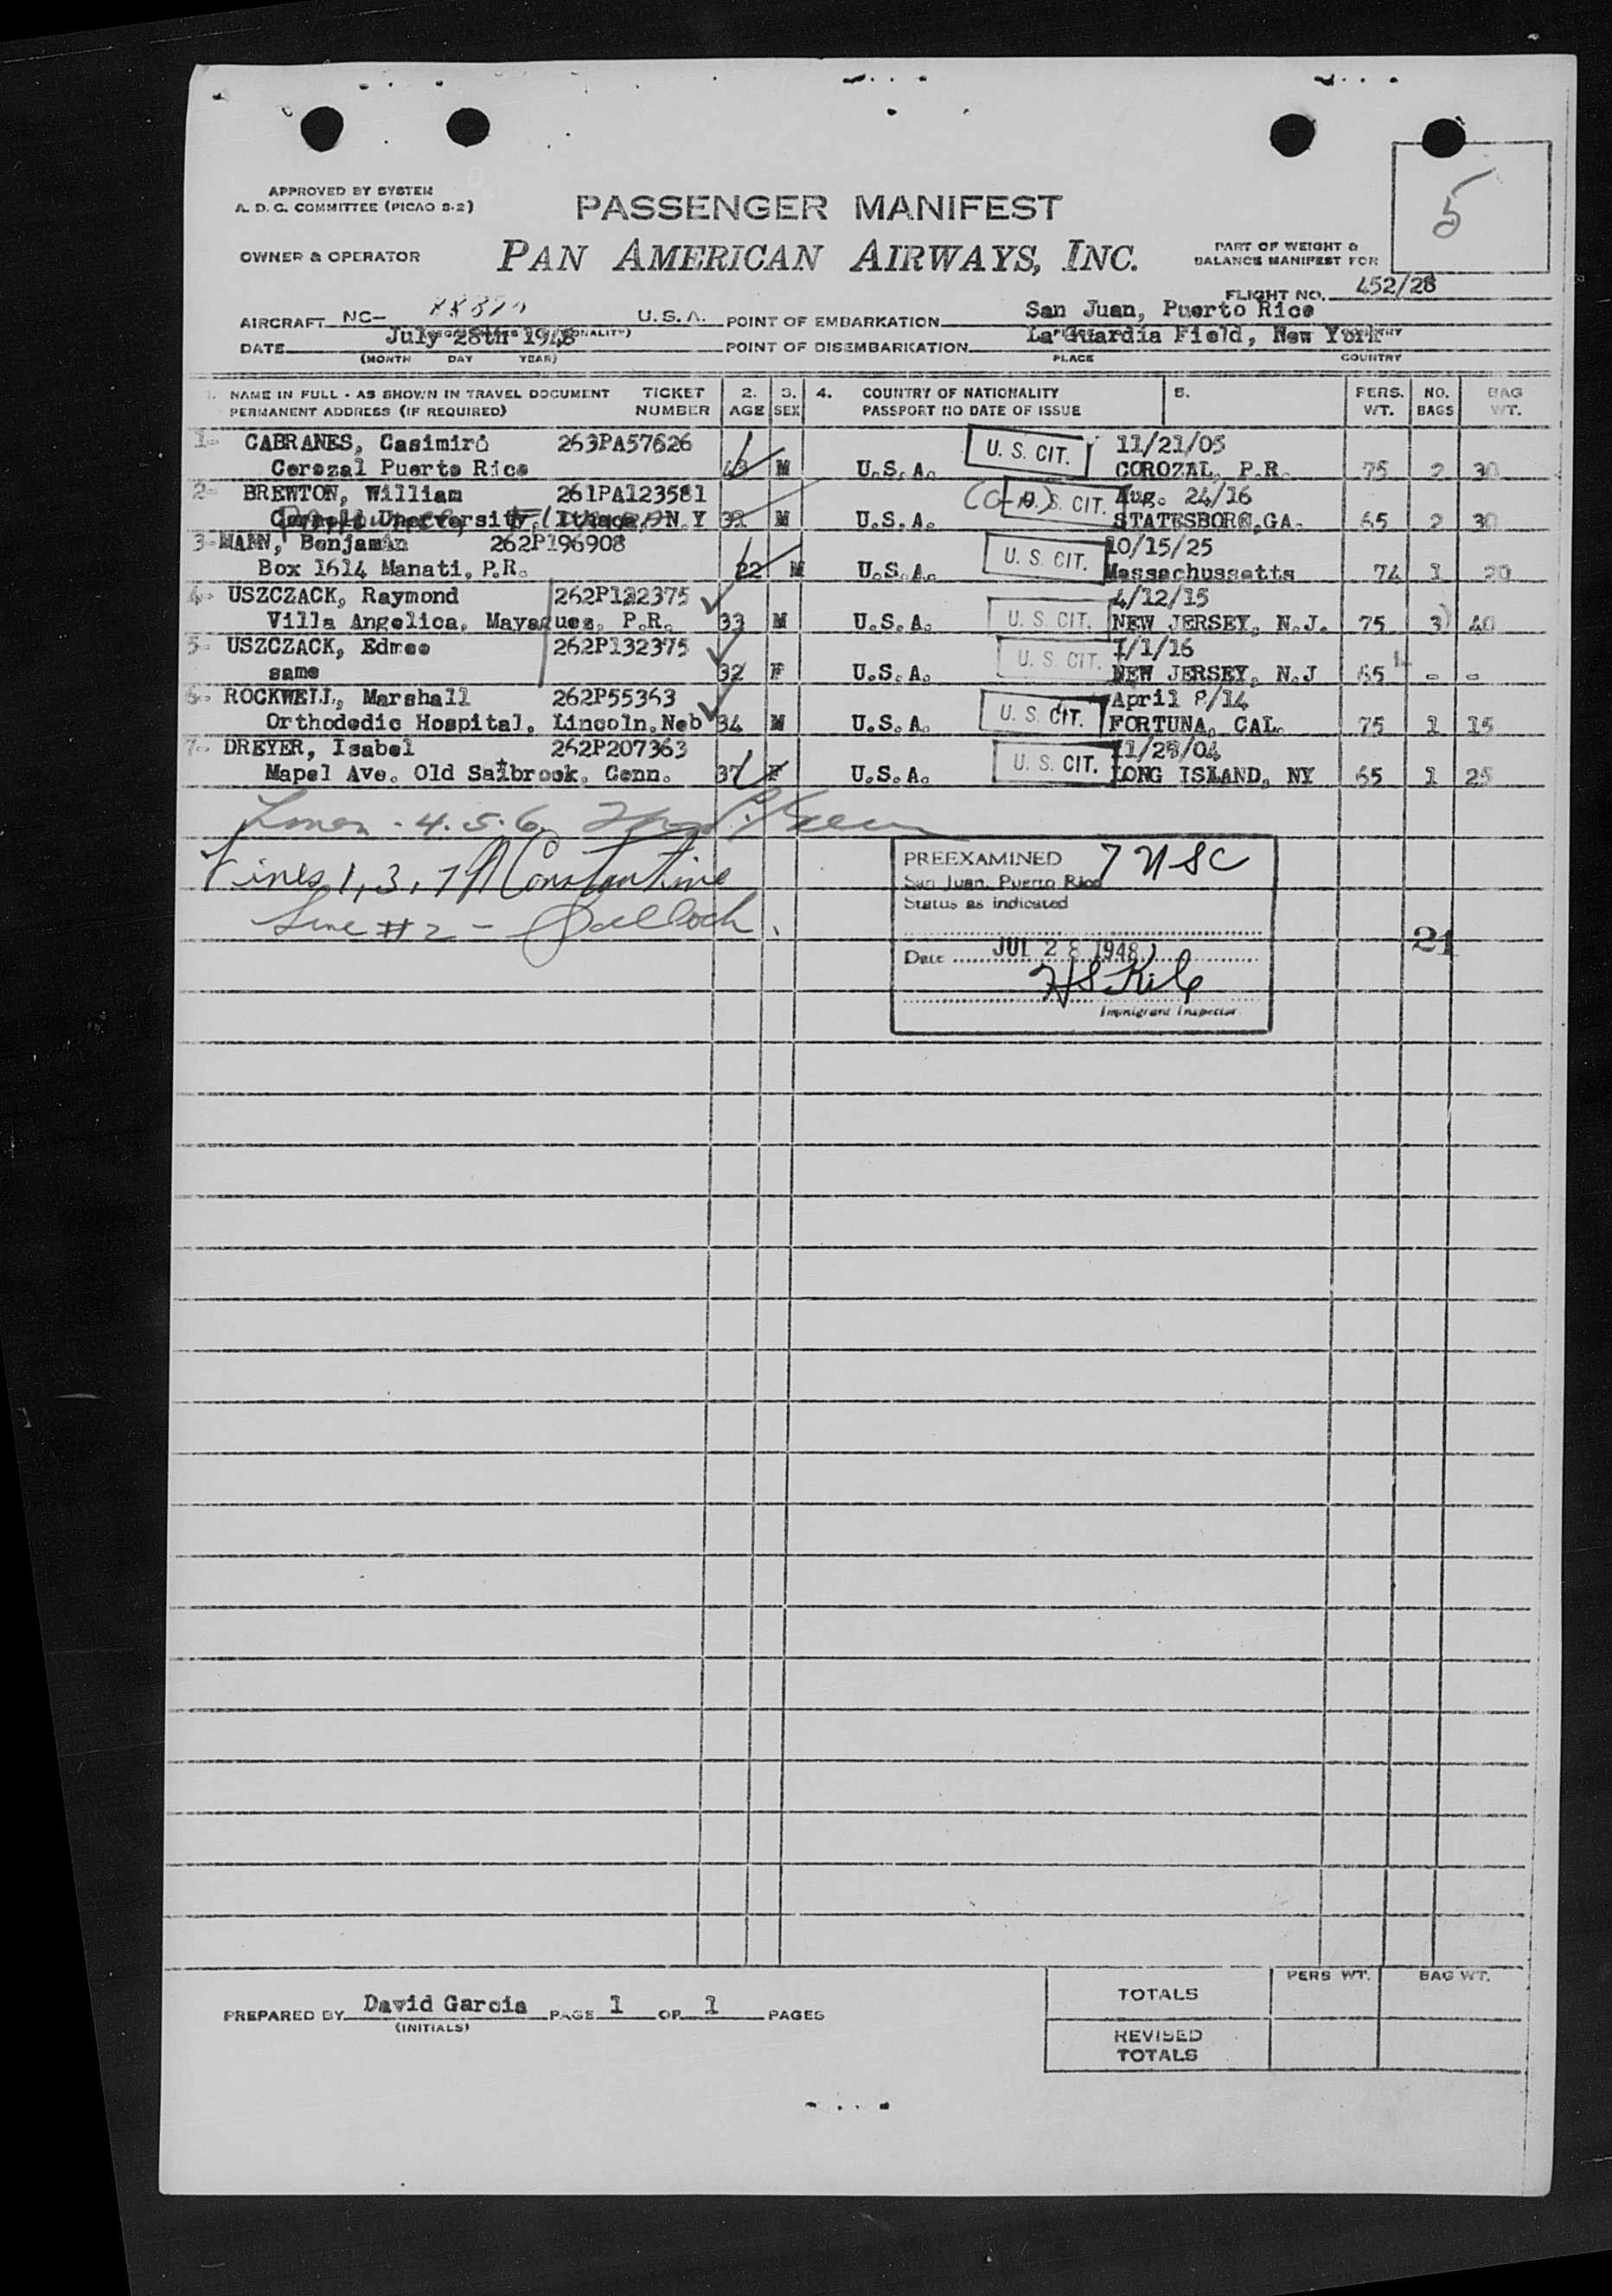 5
APPROVED BY SYSTEM
A. D. C. COMMITTEE (PICAO S-2)
PASSENGER MANIFEST
OWNER & OPERATOR
PAN AMERICAN AIRWAYS, INC.
PART OF WEIGHT &
BALANCE MANIFEST FOR
FLIGHT NO. 452/28
AIRCRAFT NC- U.S.A. POINT OF EMBARKATION San Juan, Puerto Rico
DATE July 28th 1948 POINT OF DISEMBARKATION La Guardia Field, New York
(MONTH DAY YEAR) PLACE COUNTRY
1. NAME IN FULL - AS SHOWN IN TRAVEL DOCUMENT TICKET 2. 3. 4. COUNTRY OF NATIONALITY 5. PERS. NO. BAG
PERMANENT ADDRESS (IF REQUIRED) NUMBER AGE SEX PASSPORT NO DATE OF ISSUE WT. BAGS WT.
1- CABRANES, Casimiro 263PA57626 U. S. CIT. 11/21/05
Corozal Puerto Rico M U.S.A. COROZAL, P.R. 75 2 30
2- BREWTON, William 261PA123581 U. S. CIT. Aug. 24/16
Ithaca, N.Y M U.S.A. STATESBORO,GA. 65 2 30
3- MANN, Benjamin 262P196908 U. S. CIT. 10/15/25
Box 1614 Manati, P.R. 22 M U.S.A. Massachussetts 74 1 20
4- USZCZACK, Raymond 262P132375 U. S. CIT. 4/12/15
Villa Angelica, Mayaques, P.R. 33 M U.S.A. NEW JERSEY, N.J. 75 3) 40
5- USZCZACK, Edmee 262P132375 U. S. CIT. 7/1/16
same 32 F U.S.A. NEW JERSEY, N.J 65 - -
6- ROCKWELL, Marshall 262P55363 U. S. CIT. April 8/14
Orthodedic Hospital, Lincoln.Neb 34 M U.S.A. FORTUNA, CAL. 75 1 15
7- DREYER, Isabel 262P207363 U. S. CIT. 11/28/04
Mapel Ave. Old Saibrook, Conn. 37 F U.S.A. LONG ISLAND, NY 65 1 25
4.5.6.
Lines 1, 3, 7 Constantine
Line #2 - Bulloch
PREEXAMINED 7 USC
San Juan, Puerto Rico
Status as indicated
Date JUL 28 1948
Immigrant Inspector
21
PREPARED BY David Garcia PAGE 1 OF 1 PAGES
(INITIALS)
PERS WT. BAG WT.
TOTALS
REVISED
TOTALS